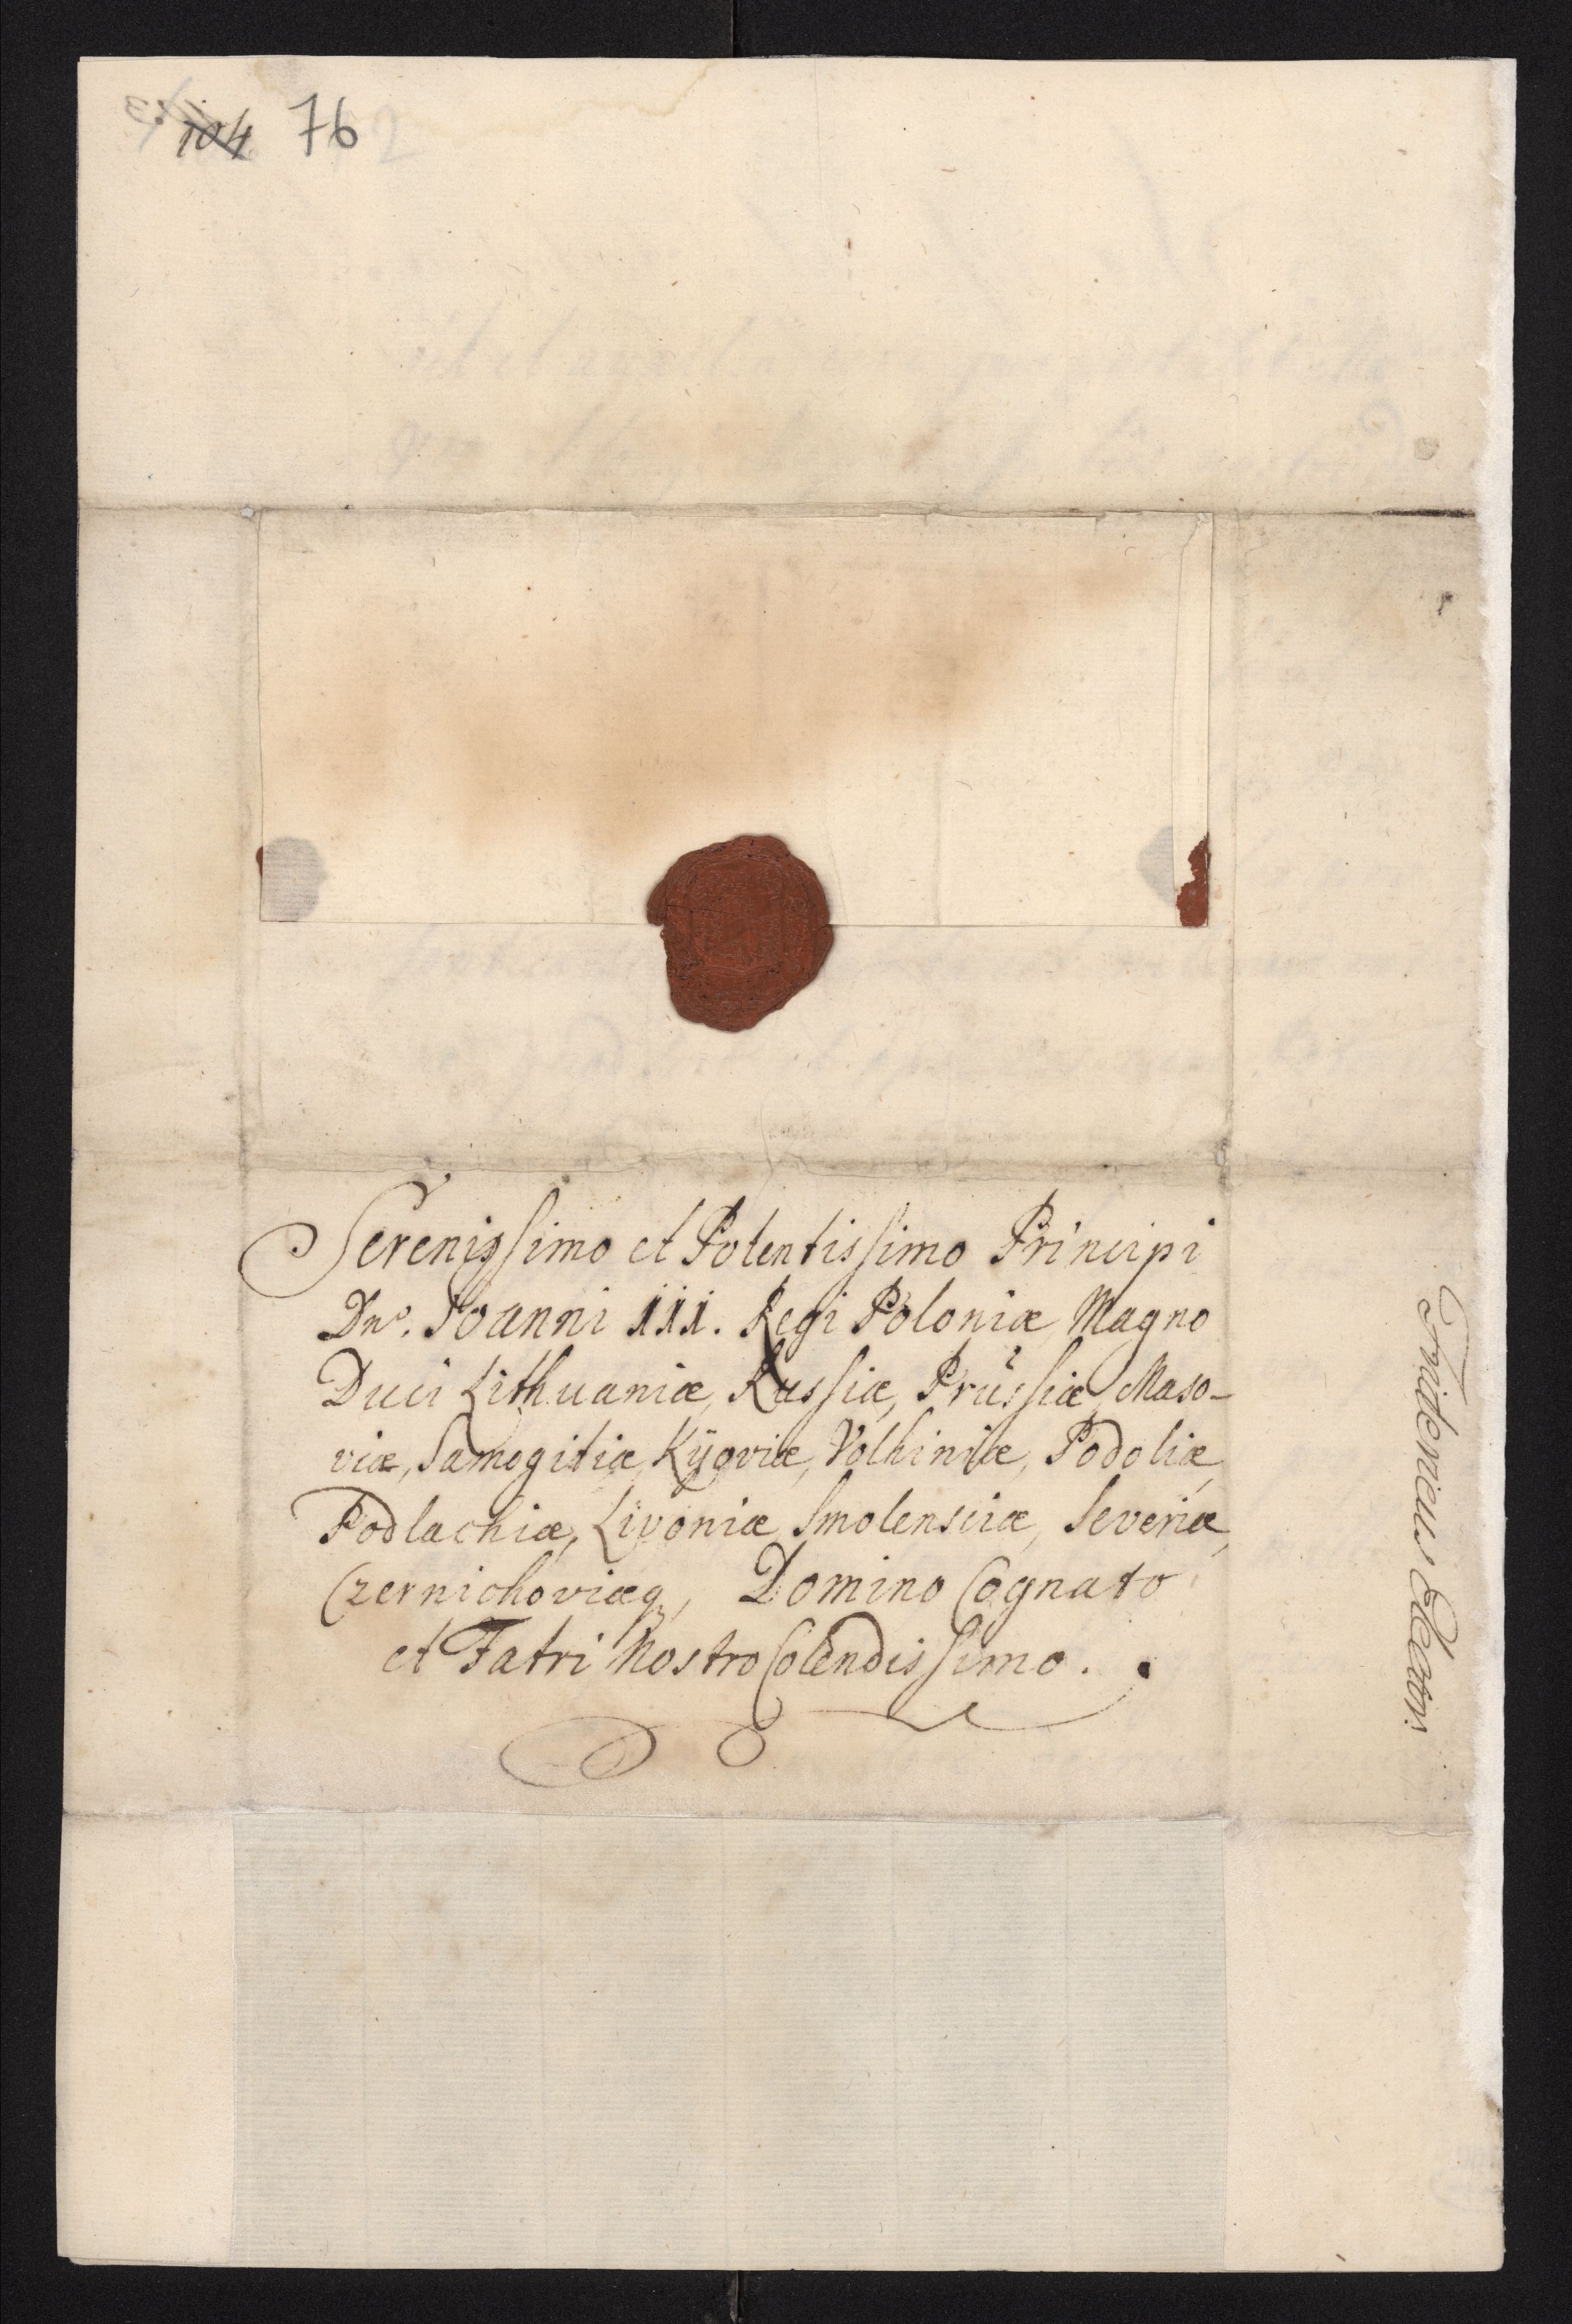 104 76
Serenissimo et Potentissimo Principi
Dno. Joanni III. Regi Poloniæ Magno
Duci Lithuaniæ, Russiæ, Prussiæ, Maso-
viæ, Samogitiæ, Kÿoviæ, Volhiniæ, Podoliæ,
Podlachiæ, Livoniæ, Smolensciæ, Severiæ,
Czernichoviæq, Domino Cognato
et Fatri Nostro Colendissimo.
Fridericus Elector.